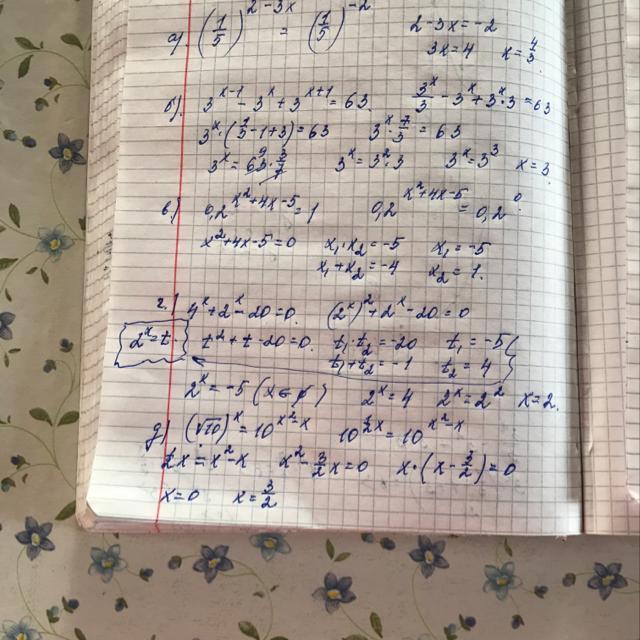 а) (1/5)^(2-3x) = (1/5)^(-2) 2-3x=-2
3x=4 x=4/3
б) 3^(x-1) - 3^x + 3^(x+1) = 63 3^x/3 - 3^x + 3^x·3 = 63
3^x·(1/3-1+3)=63 3^x·7/3=63
3^x=63·3/7 3^x=3^2·3 3^x=3^3 x=3
в) 0,2^(x^2+4x-5)=1 0,2^(x^2+4x-5)=0,2^0
x^2+4x-5=0 x_1·x_2=-5 x_1=-5
x_1+x_2=-4 x_2=1.
г) 4^x+2^x-20=0. (2^x)^2+2^x-20=0
2^x=t t^2+t-20=0. t_1·t_2=-20 t_1=-5
t_1+t_2=-1 t_2=4
2^x=-5 (x∈∅) 2^x=4 2^x=2^2 x=2.
д) (√10)^x=10^(x^2-x) 10^(1/2x)=10^(x^2-x)
1/2x=x^2-x x^2-3/2x=0 x·(x-3/2)=0
x=0 x=3/2